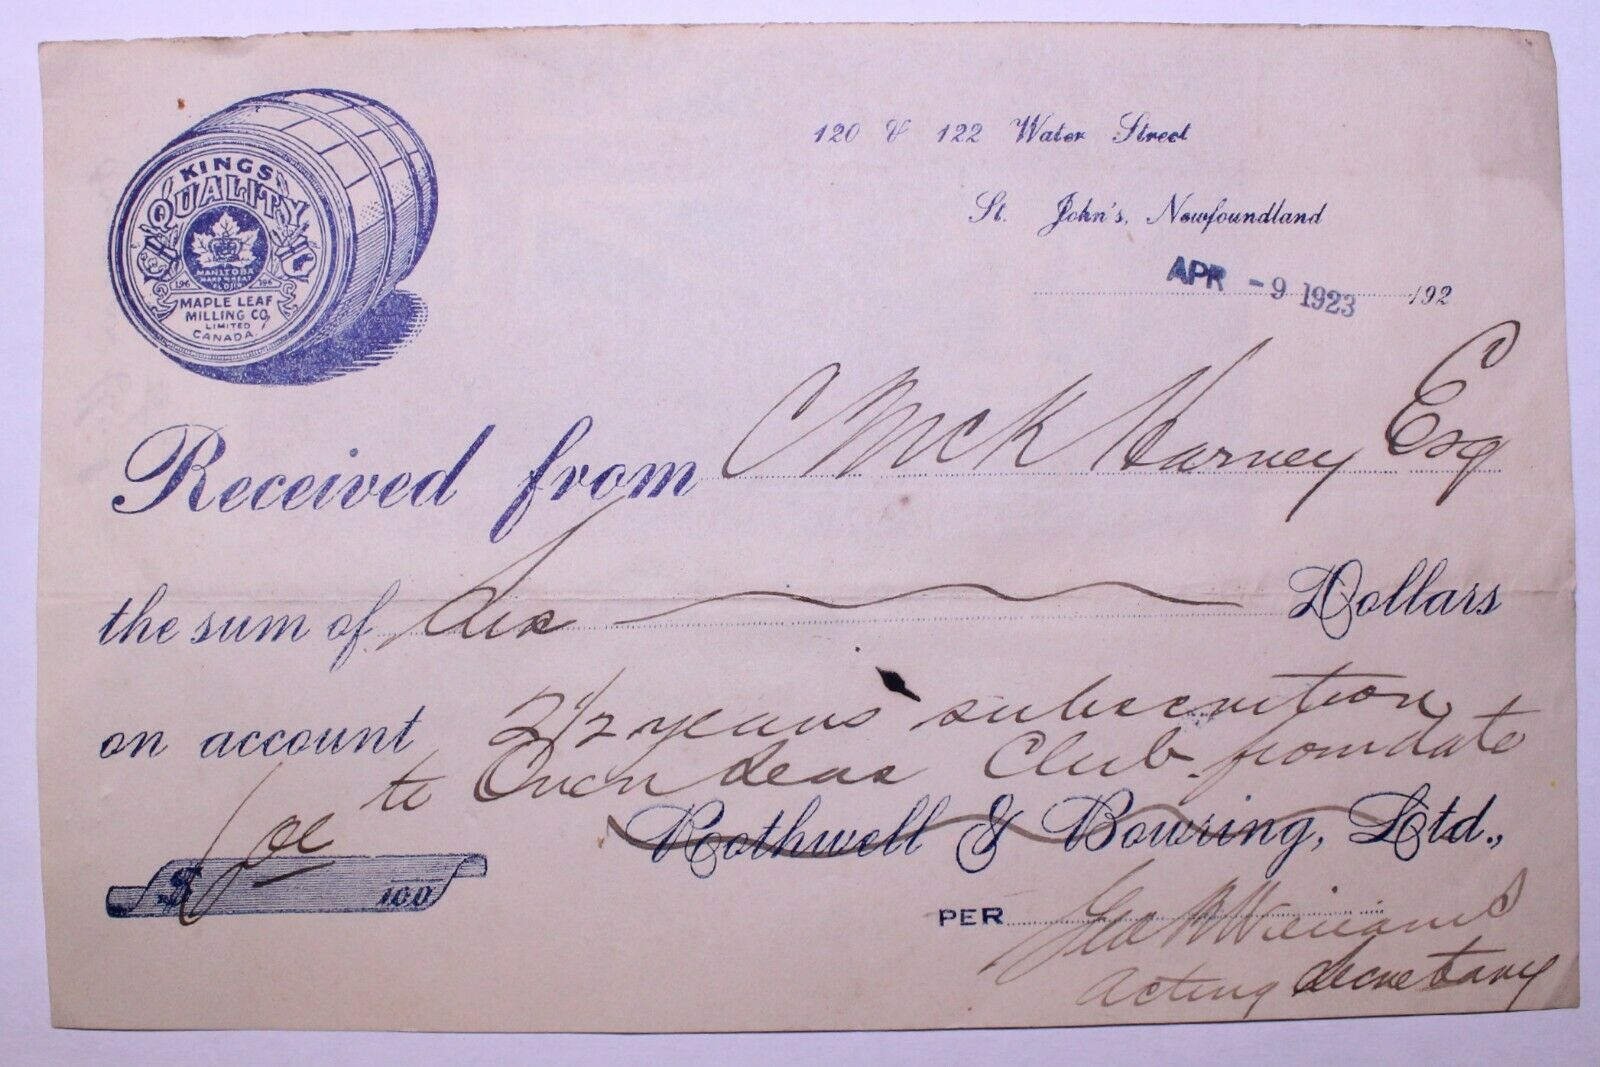 KINGS
QUALITY
MANITOBA
HARD WHEAT
196 196
MAPLE LEAF
MILLING CO,
LIMITED
CANADA.
120 & 122 Water Street
St. John's, Newfoundland
APR - 9 1923 192
Received from C McK Harvey Esq
the sum of Six Dollars
on account 2 1/2 years subscrition
to Over Seas Club from date
Rothwell & Bowring, Ltd.,
$ 6 00 100
PER Geo R Williams
Acting Secretary